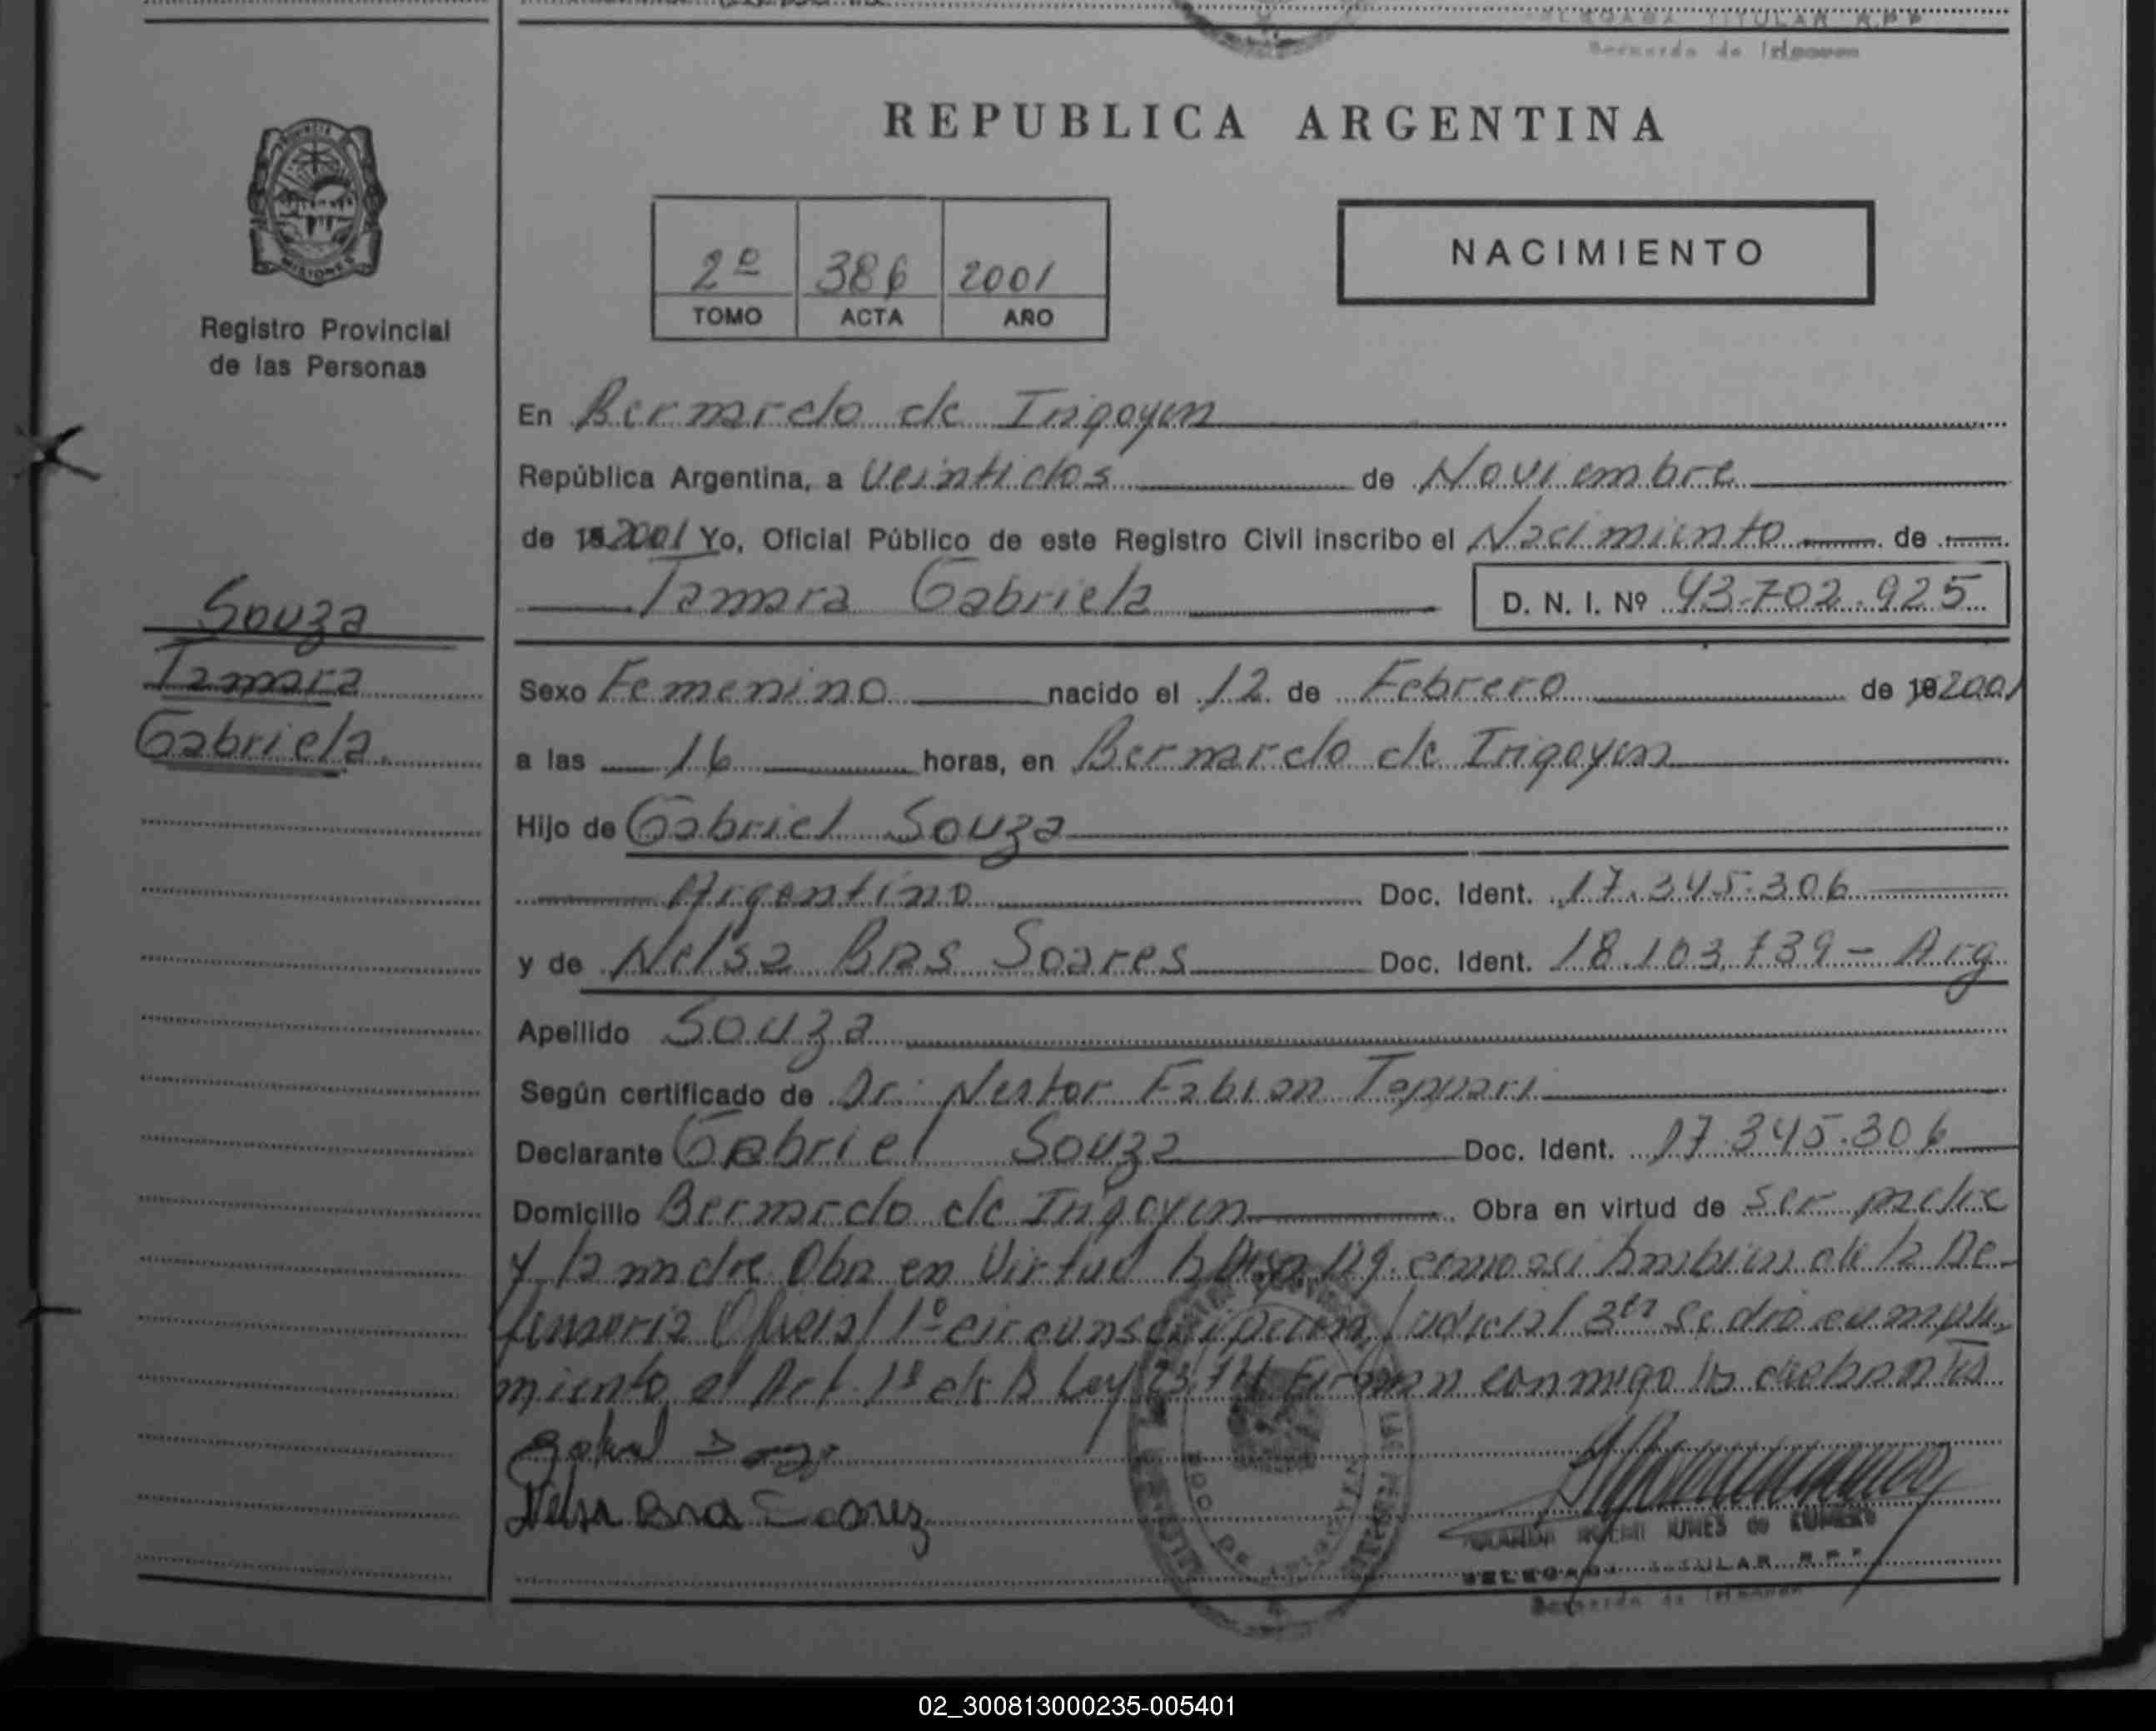 Bernardo de Irigoyen
REPUBLICA ARGENTINA
MISIONES
Registro Provincial
de las Personas
2º 386 2001
TOMO ACTA AÑO
NACIMIENTO
En Bernardo de Irigoyen
República Argentina, a Veintidos de Noviembre
de 19 2001 Yo, Oficial Público de este Registro Civil inscribo el Nacimiento de
Tamara Gabriela D. N. I. Nº 43.702.925
Souza
Tamara
Gabriela.
Sexo Femenino nacido el 12 de Febrero de 19 2001
a las 16 horas, en Bernardo de Irigoyen
Hijo de Gabriel Souza
Argentino Doc. Ident. 17.345.306
y de Nelsa Bras Soares Doc. Ident. 18.103.739 - Arg
Apellido Souza
Según certificado de Dr. Nestor Fabian
Declarante Gabriel Souza Doc. Ident. 17.345.306
Domicilio Bernardo de Irigoyen Obra en virtud de ser padre
y la madre Oba en Virtud como asi tambien de la De-
fensoria Oficial 1º circunscripcion Judicial 3ra se dio cumpli
miento al Art. 1º de la Ley Firman conmigo los
DELEGADA TITULAR R.P.P.
Bernardo de Irigoyen
02_300813000235-005401